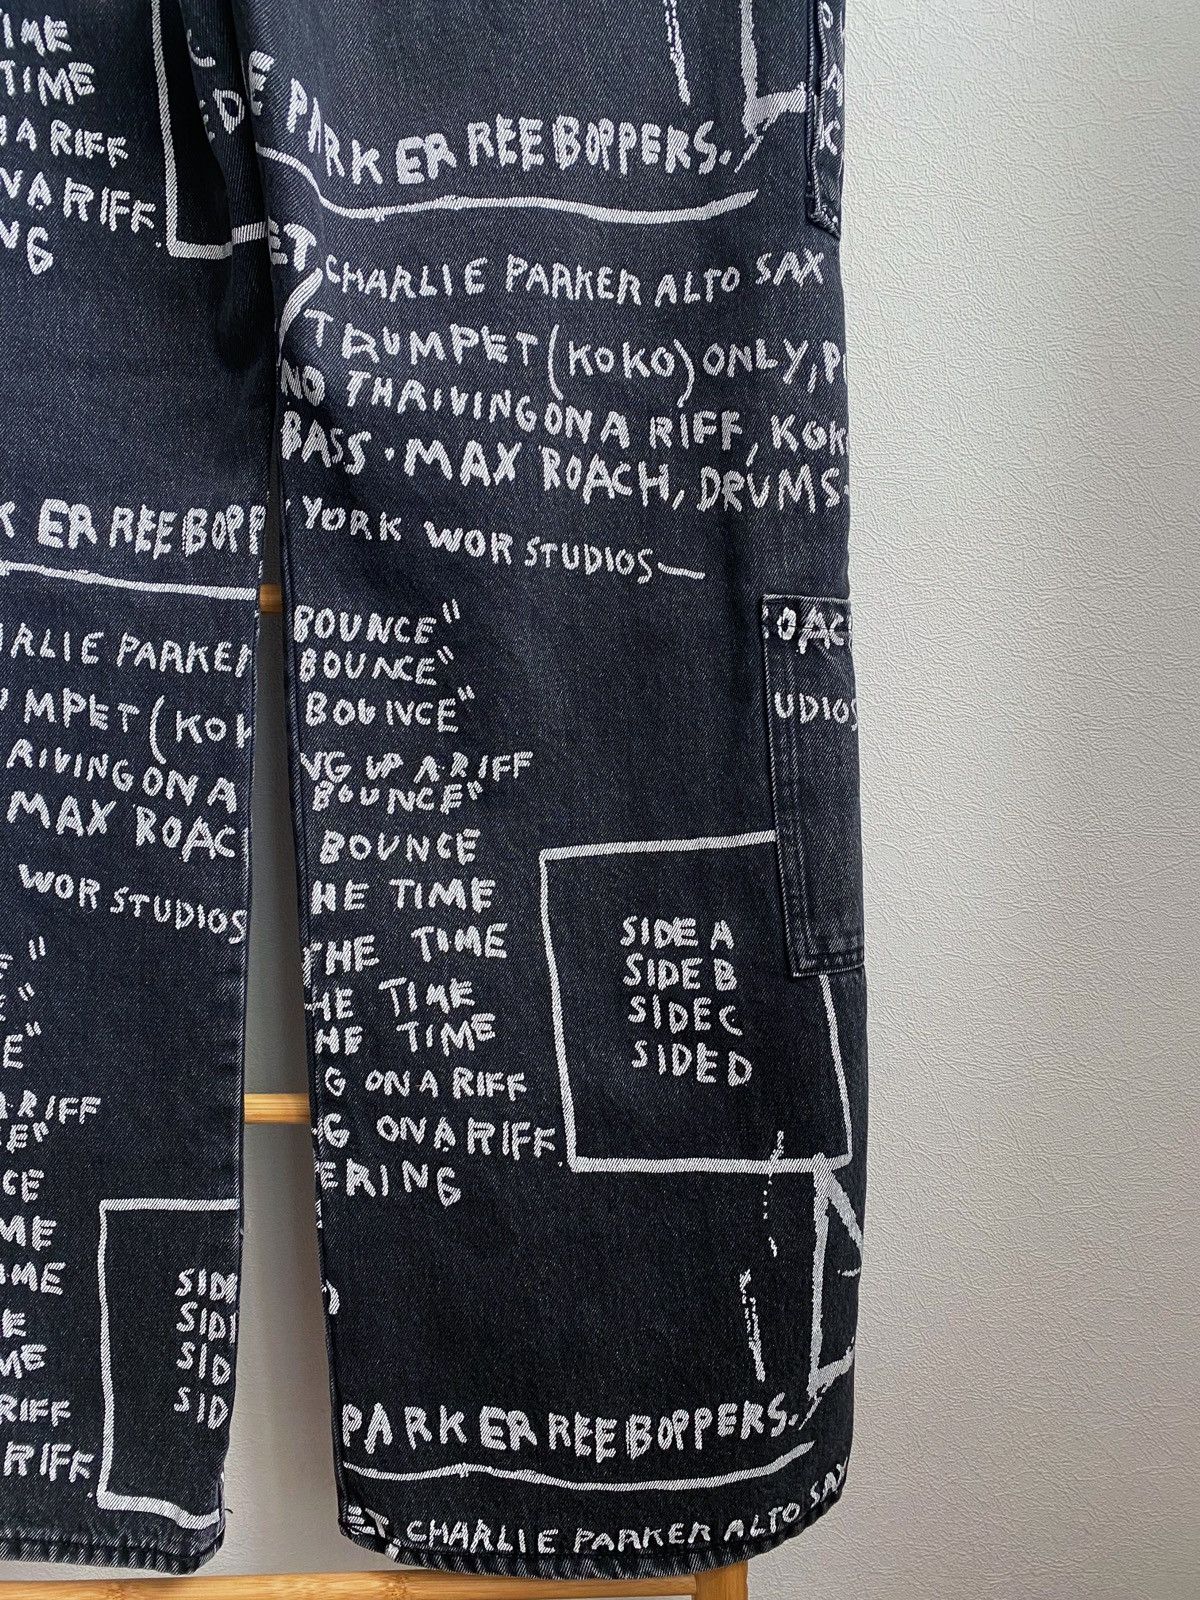 TIME
TIME
A RIFF
ON A RIFF.
NG
ED
E PARKER REEBOPPERS.
ET, CHARLIE PARKER ALTO SAX
TRUMPET (KOKO) ONLY, P
NO THRIVING ON A RIFF, KOK
BASS · MAX ROACH, DRUMS.
YORK WOR STUDIOS—
BOUNCE"
BOUNCE"
BOUNCE"
NG UP A RIFF
BOUNCE"
BOUNCE
HE TIME
THE TIME
HE TIME
HE TIME
G ON A RIFF
G ON A RIFF.
ERING
OAC
UDIOS
SIDE A
SIDE B
SIDE C
SIDE D
PARKER REEBOPPERS.
ET, CHARLIE PARKER ALTO SAX
K ER REEBOPP
ARLIE PARKER
UMPET (KOK
RIVING ON A
MAX ROAC
WOR STUDIOS
"
"
E"
A RIFF
E"
CE
ME
IME
E
ME
RIFF
RIFF.
SID
SID
SID
SID